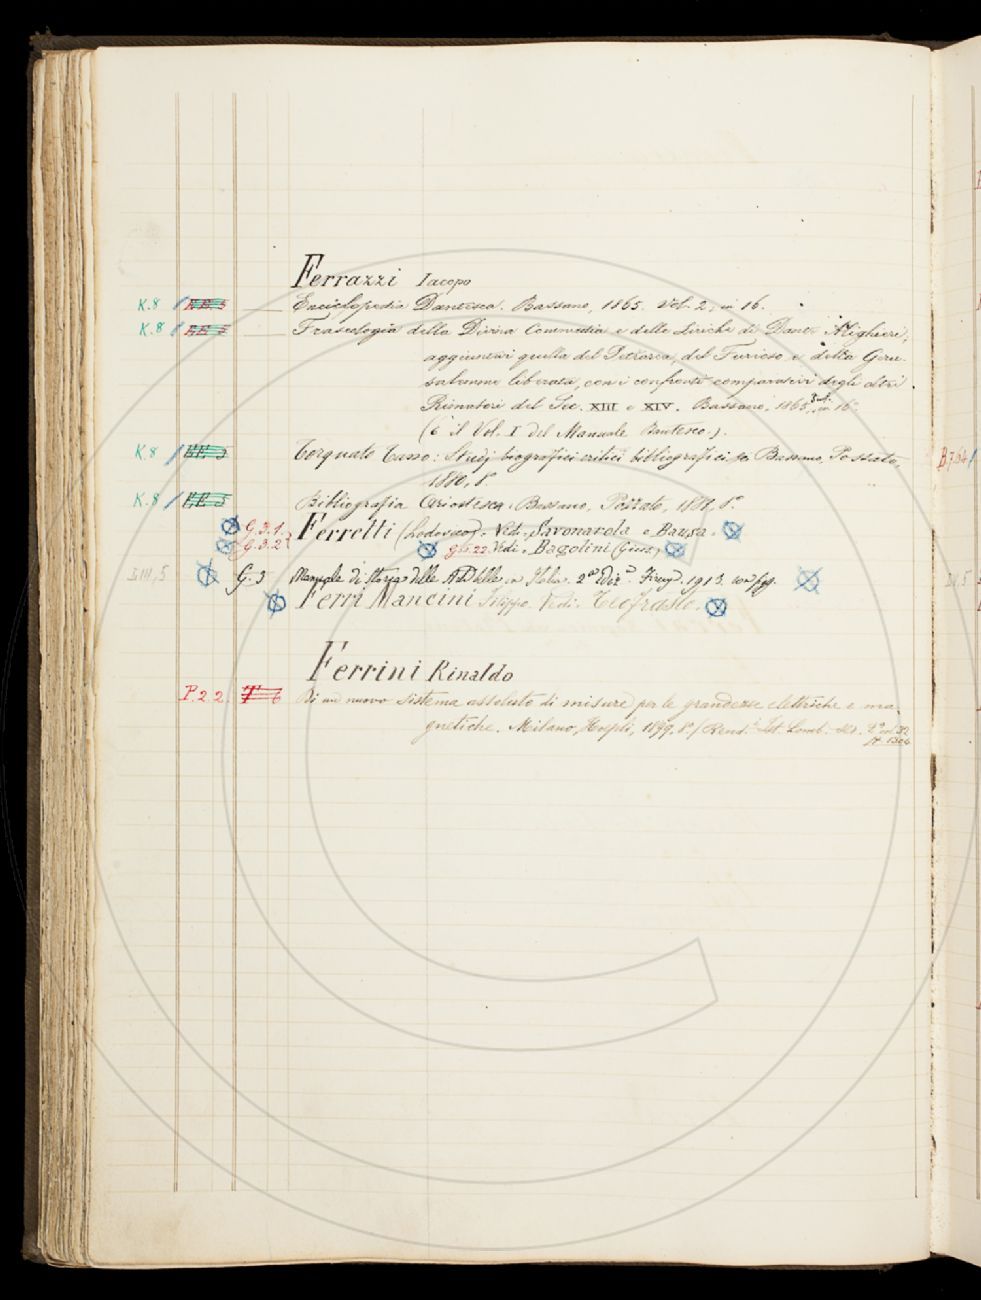 Ferrazzi Iacopo
K.8 Enciclopedia Dantesca. Bassano, 1865. Vol. 2, in 16.
K.8 Fraseologia della Divina Commedia e delle Liriche di Dante Alighieri,
aggiuntavi quella del Petrarca, del Furioso e della Geru-
salemme liberata, con i confronti comparativi degli altri
Rimatori del Sec. XIII e XIV. Bassano, 1865, in 16°
(è il Vol. I del Manuale Dantesco.).
K.8 Torquato Tasso: Studj biografici critici bibliografici Bassano, Pozzato,
1880, 8°
K.8 Bibliografia Ariostesca. Bassano, Pozzato, 1881, 8°
G.3.1. Ferretti (Lodovico). Vedi. Savonarola e Bausa.
G.3.2 G.5.22. Vedi. Bagolini (Gius.)
I.III.5 G.3 Manuale di Storia delle Arti belle in Italia. 2ª Ediz. 1913. con figg.
Ferri Mancini Filippo. Vedi. Teofrasto.
Ferrini Rinaldo
P.2.2. T 6 Di un nuovo sistema assoluto di misure per le grandezze elettriche e ma-
gnetiche. Milano, Hoepli, 1899. 8° (Rend. Ist. Lomb.